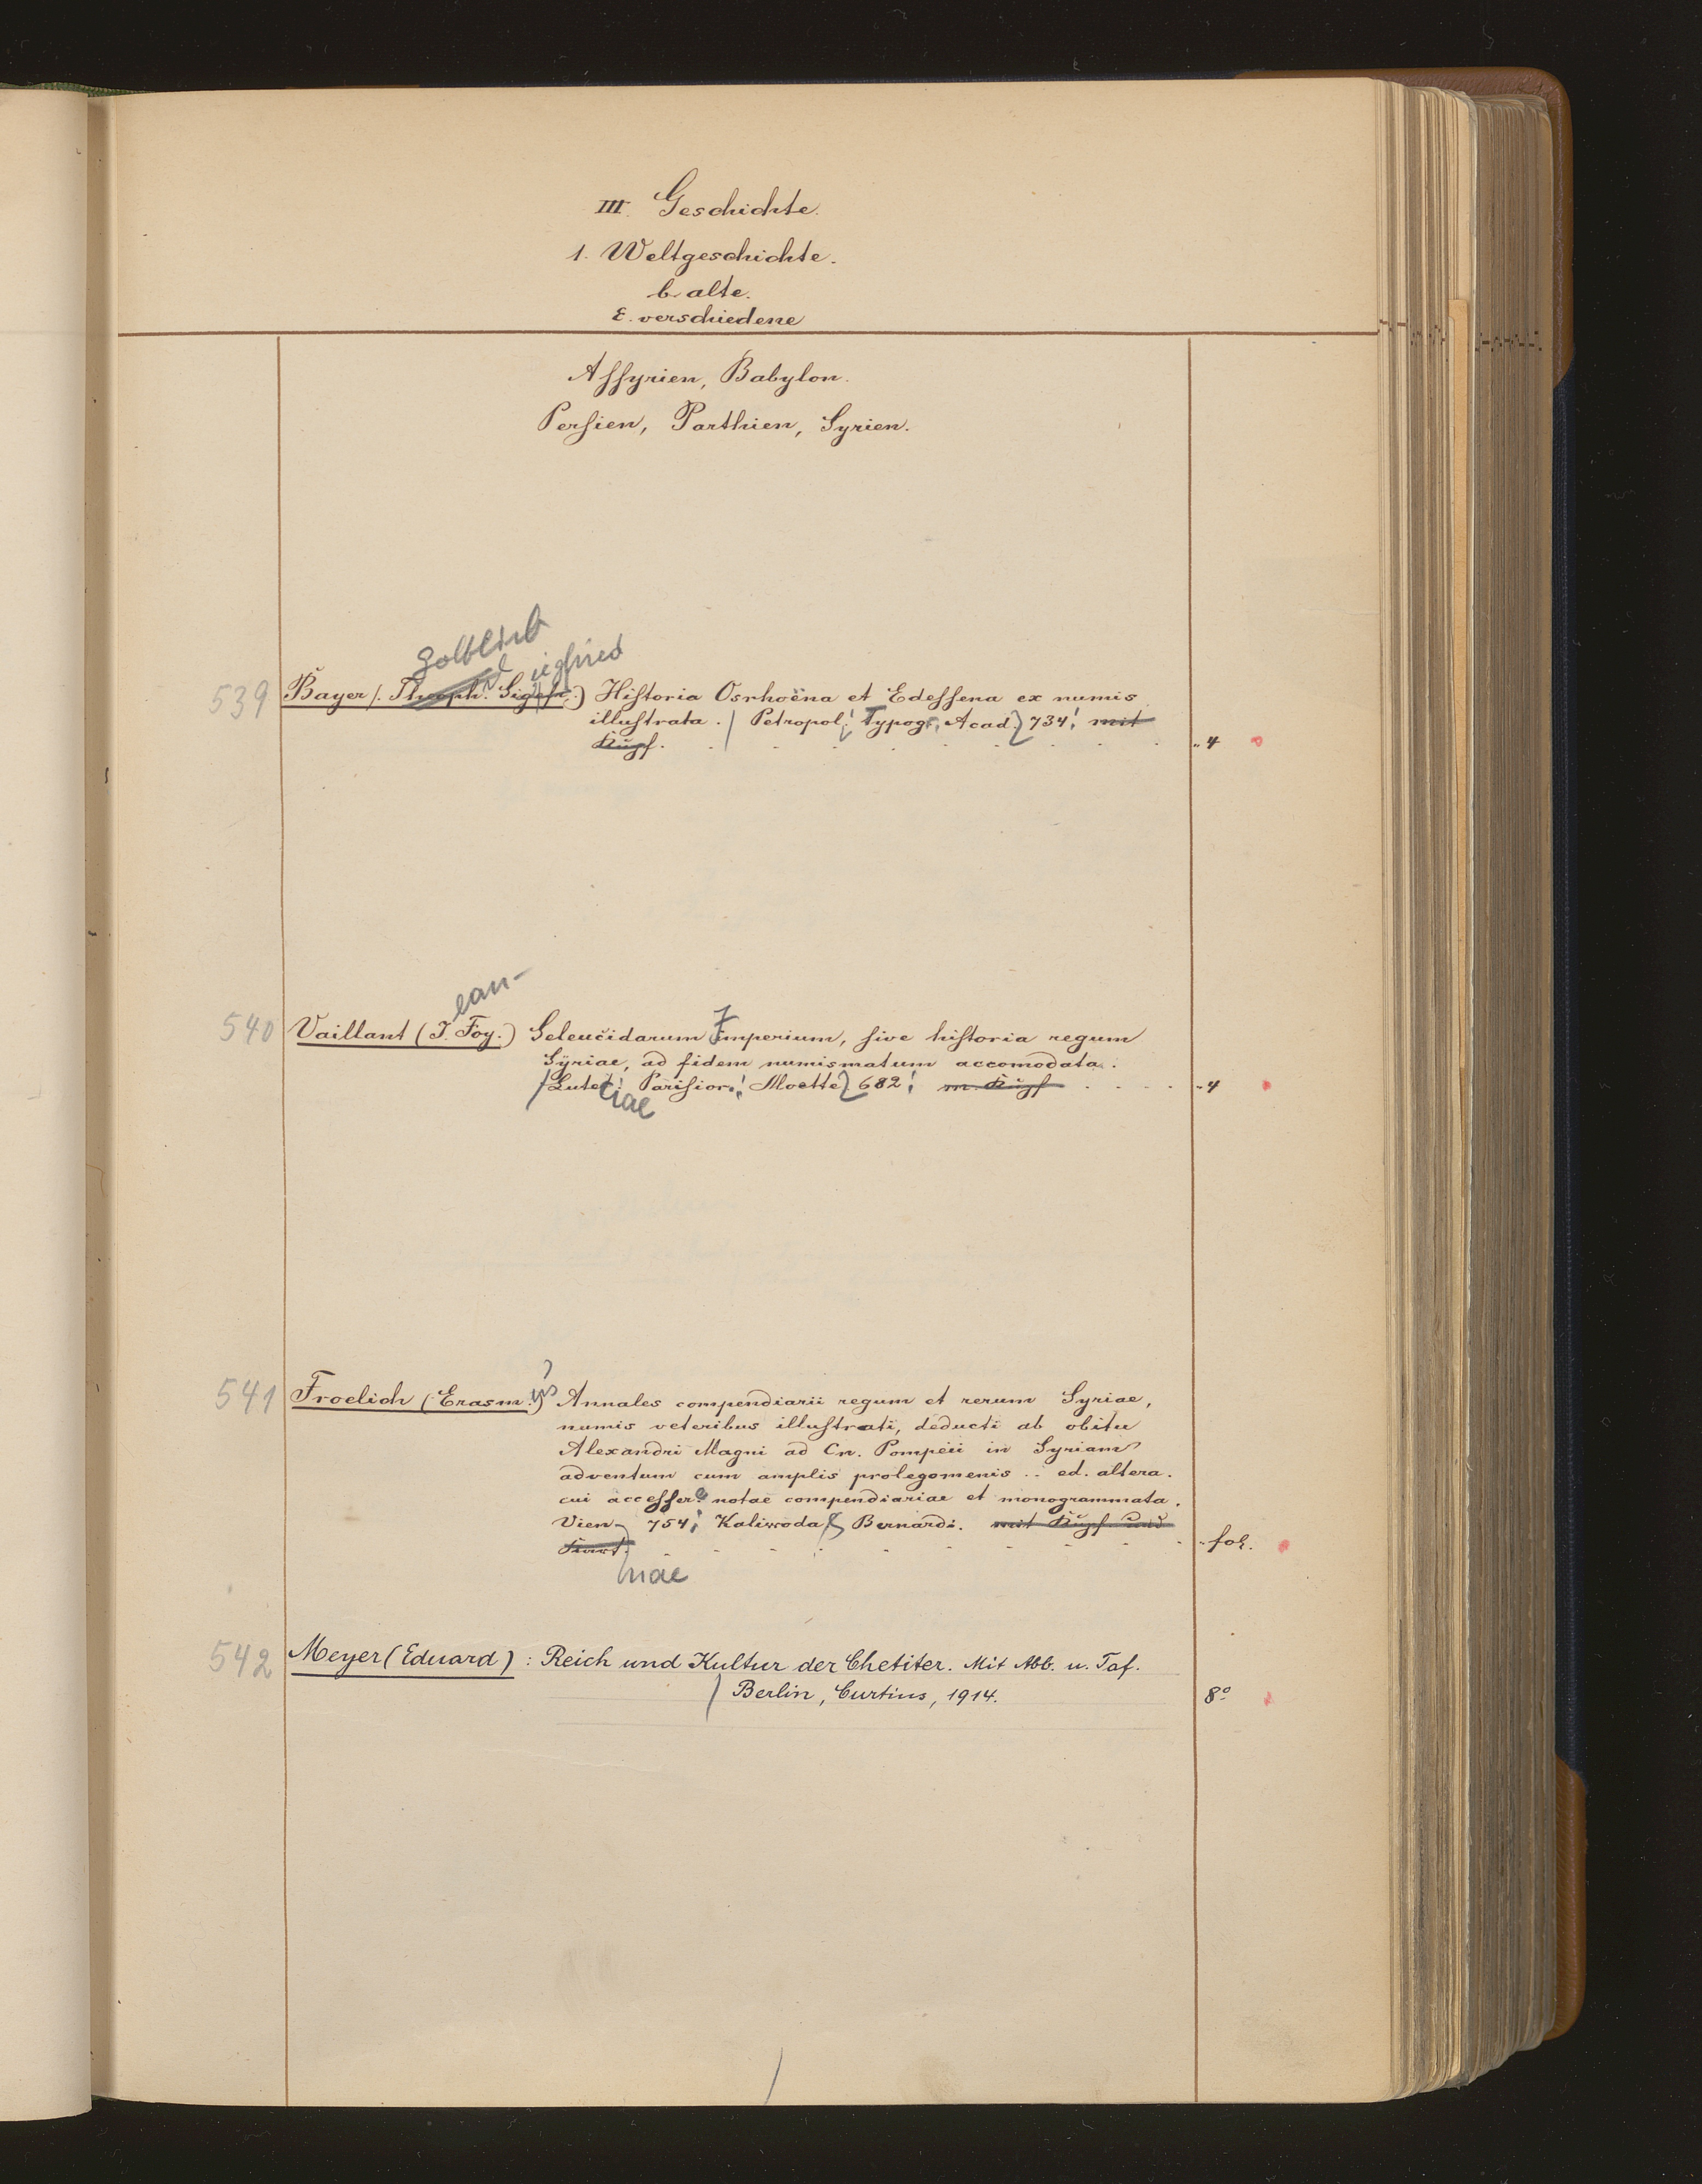 III. Geschichte.
1. Weltgeschichte.
b. alte.
ε. verschiedene
Assyrien, Babylon.
Persien, Parthien, Syrien.
Gottlieb
iegfried
539 Bayer (Theoph. Sigefr.) Historia Osrhoëna et Edessena ex numis
illustrata. / Petropol. Typogr. Acad. 734. mit
Kupf. .. 4
ean-
540 Vaillant (J. Foy.) Seleucidarum Imperium, sive historia regum
Syriae, ad fidem numismatum accomodata.
/ Lutet. Parisior. Moette 682. m. Kupf .. 4
tiae
541 Froelich (Erasm.us) Annales compendiarii regum et rerum Syriae,
numis veteribus illustrati, deducti ab obitu
Alexandri Magni ad Cn. Pompeii in Syriam
adventum cum amplis prolegomenis .. ed. altera.
cui accesser. notae compendiariae et monogrammata.
Vien 754. Kaliwoda Bernardi. mit Kupf und
Kart. .. fol.
nae
542 Meyer (Eduard) : Reich und Kultur der Chetiter. Mit Abb. u. Taf.
/ Berlin, Curtius, 1914. 8º